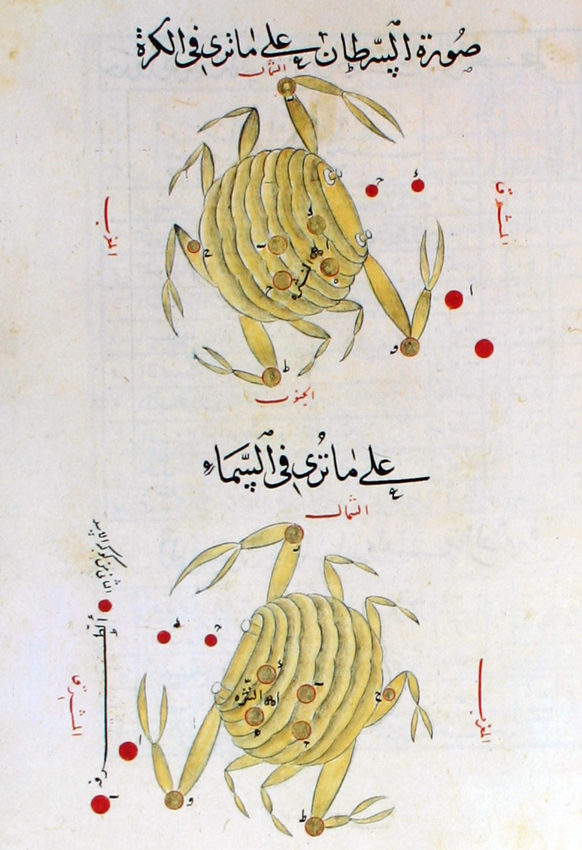 صُورَة السَّرطان على ما ترى فى الكرة
الشمال
د
ء
المشرق
المغرب
ح
ا
ء
ه
ج
و
ط
الجنوب
على ما تُرى فى السَّماء
الشمال
ز
المشرق
المغرب
ء
النثره
ه
ج
ح
ا
و
ط